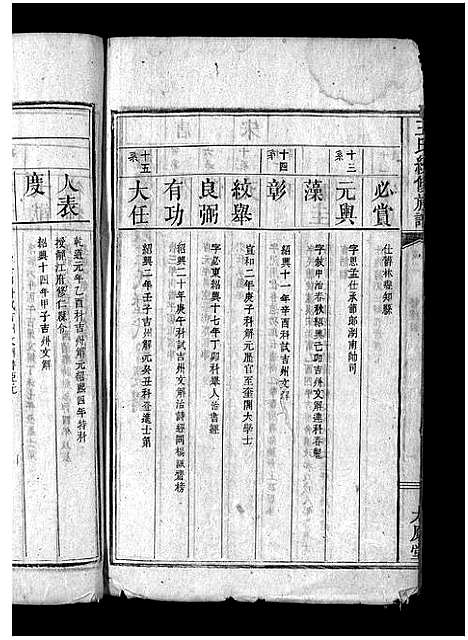 王氏續修族譜
必賞
仕醴林縣知縣
十三系
元輿
字恩孟仕承節郎湖南帥司
藻
字敘中治春秋紹興己卯吉州文解連科春魁
十四系
彰
紹興十一年辛酉科試吉州文解
紋舉
宣和二年庚子科解元歷官至奎閣大學士
良弼
字必東紹興十七年丁卯科舉人治書經
有功
紹興二十年庚午科試吉州文解治詩經同楊誠齋榜
十五系
大任
紹興二年壬子吉州解元癸丑科登進士第
人表
乾道元年乙酉科吉州解元紹熙四年特科
授靜江府修仁縣令
度
紹興十四年甲子吉州文解